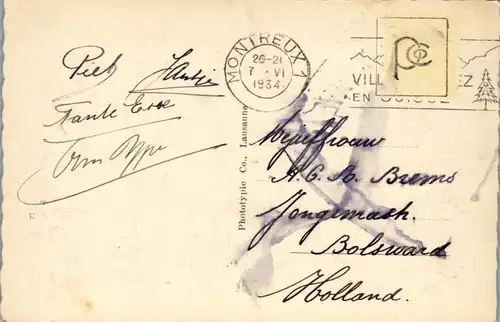 Piet Hansje
Tante
Oom
MONTREUX 1
20-21
7 - VI
1934
VILL EZ
EN SUISSE
Phototypie Co., Lausanne
Mejuffrouw
A. G. B. Brems
Jongemash.
Bolsward
Holland.